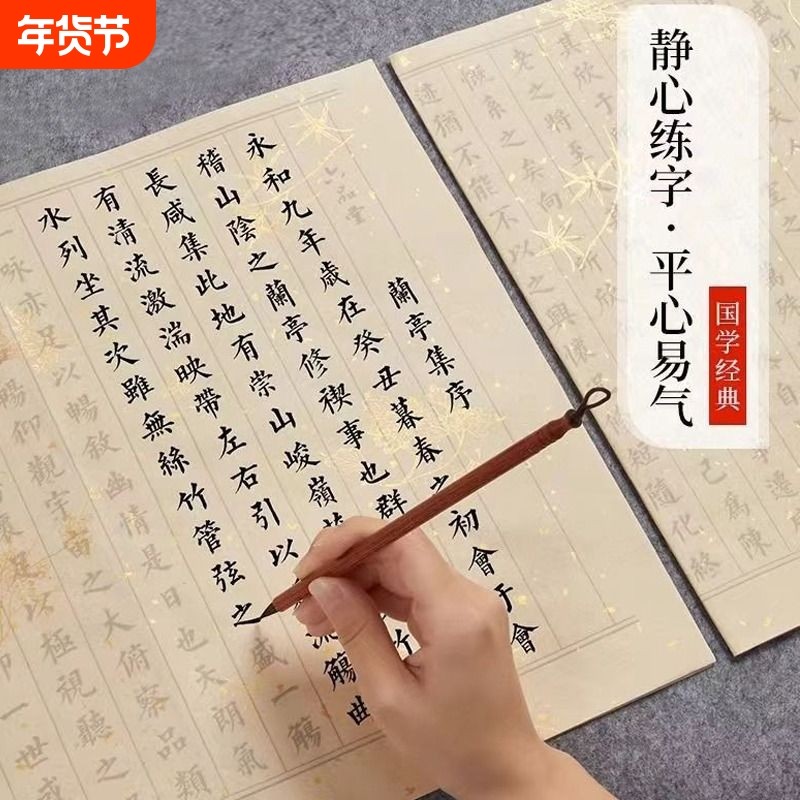 年货节
静心练字·平心易气
国学经典
六品堂
蘭亭集序
永和九年歲在癸丑暮春之初會于會
稽山陰之蘭亭修禊事也群
長咸集此地有崇山峻嶺茂竹
有清流激湍映帶左右引以流觴曲
水列坐其次雖無絲竹管弦之盛一觴
一詠亦足以暢敘幽情是日也天朗氣
暢仰觀宇宙之大俯察品類
足以極視聽之
仰一世或
其欣于
老之將至
已為陳
猶不能不以
短隨化終